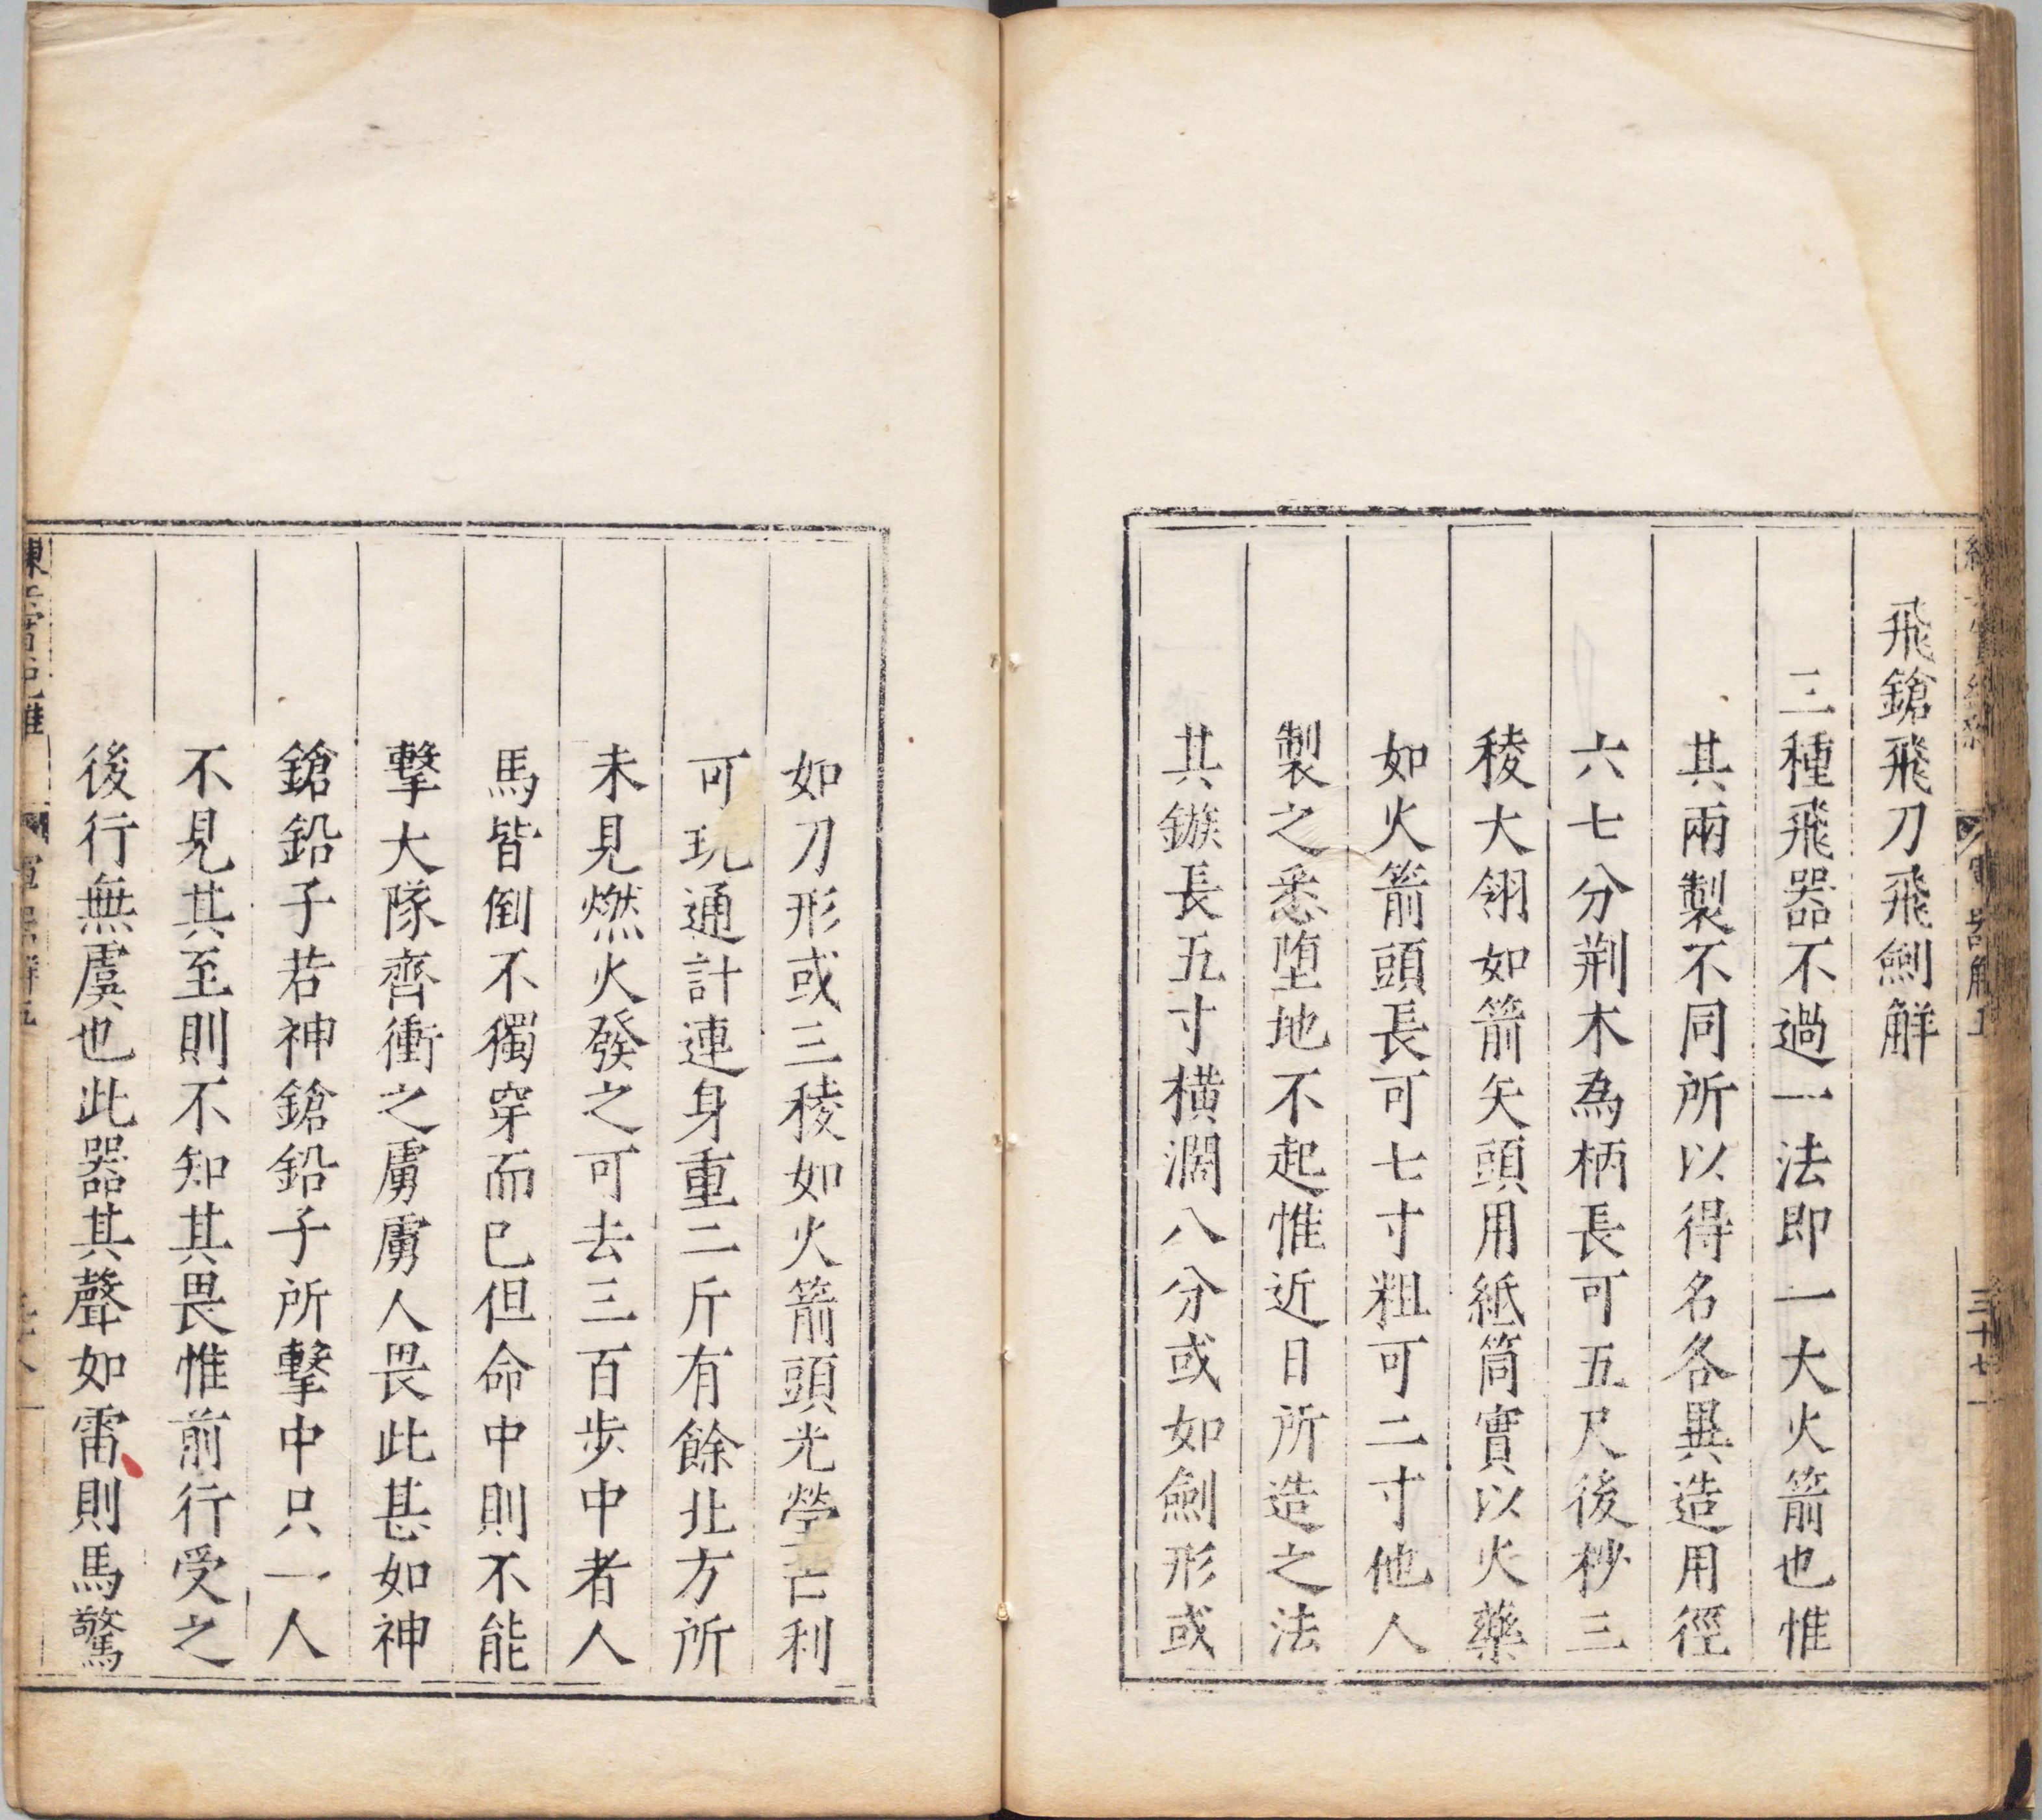 飛鎗飛刀飛劍觧
三種飛器不過一法即一大火箭也惟
其兩製不同所以得名各異造用徑
六七分荆木為柄長可五尺後杪三
稜大翎如箭矢頭用紙筒實以火藥
如火箭頭長可七寸粗可二寸他人
製之悉墮地不起惟近日所造之法
其鏃長五寸横濶八分或如劍形或
三十七
如刀形或三稜如火箭頭光瑩芒利
可玩通計連身重二斤有餘北方所
未見燃火發之可去三百步中者人
馬皆倒不獨穿而已但命中則不能
擊大隊齊衝之虜虜人畏此甚如神
鎗鉛子若神鎗鉛子所擊中只一人
不見其至則不知其畏惟前行受之
後行無虞也此器其聲如雷則馬驚